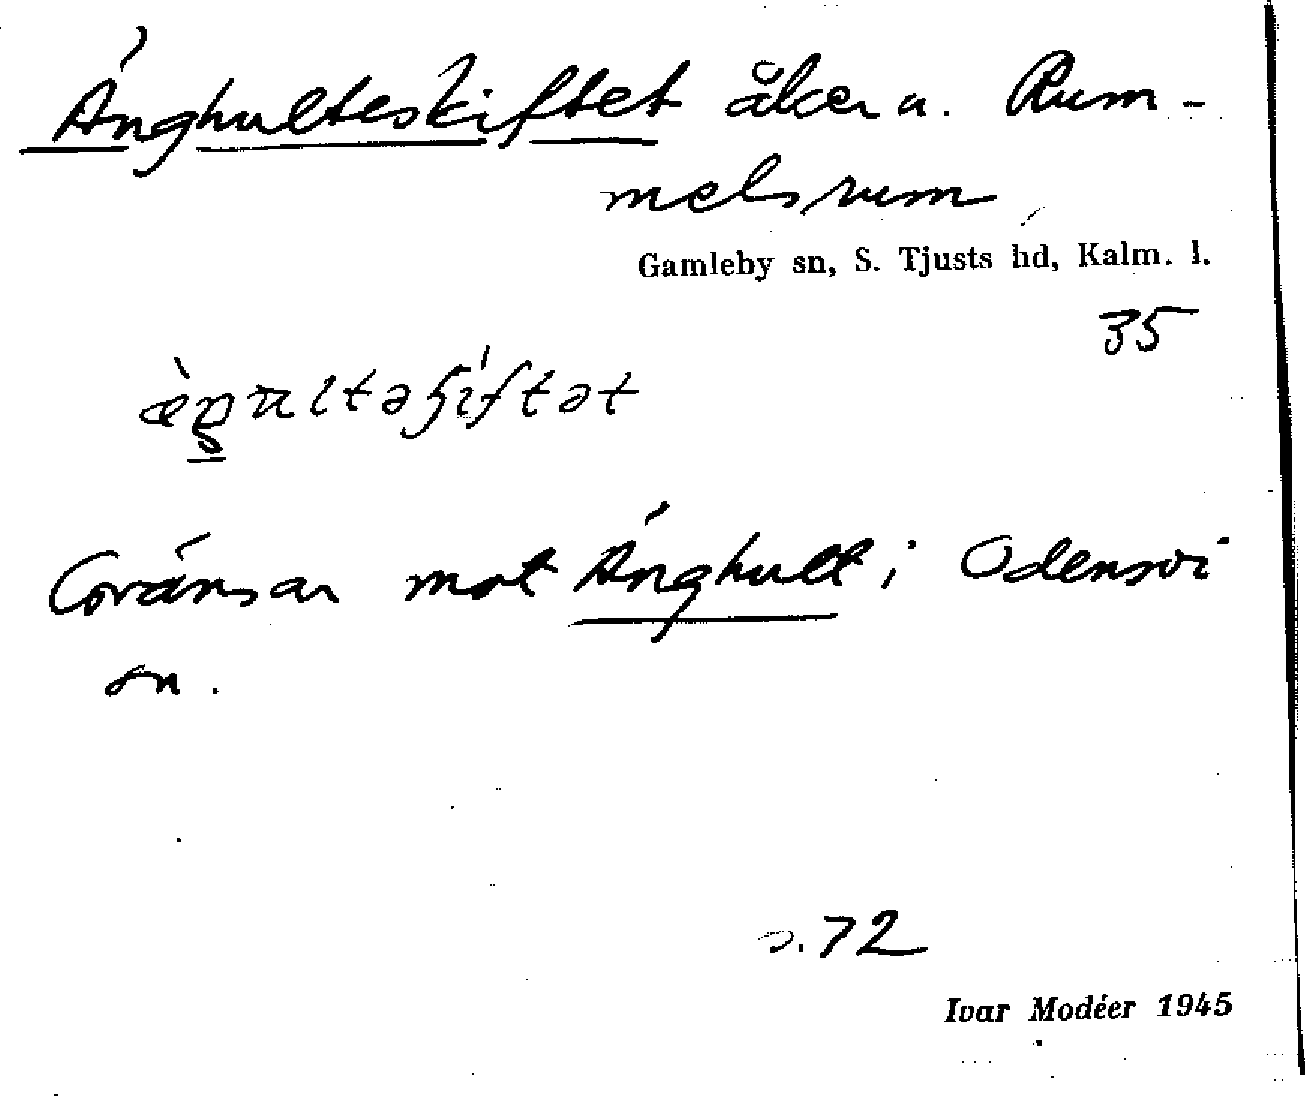 Änghulteskiftet åker u. Rum-
melsrum
Gamleby sn, S. Tjusts hd, Kalm. l.
35
Gränsar mot Änghult i Odensvi
sn.
s. 72
Ivar Modéer 1945